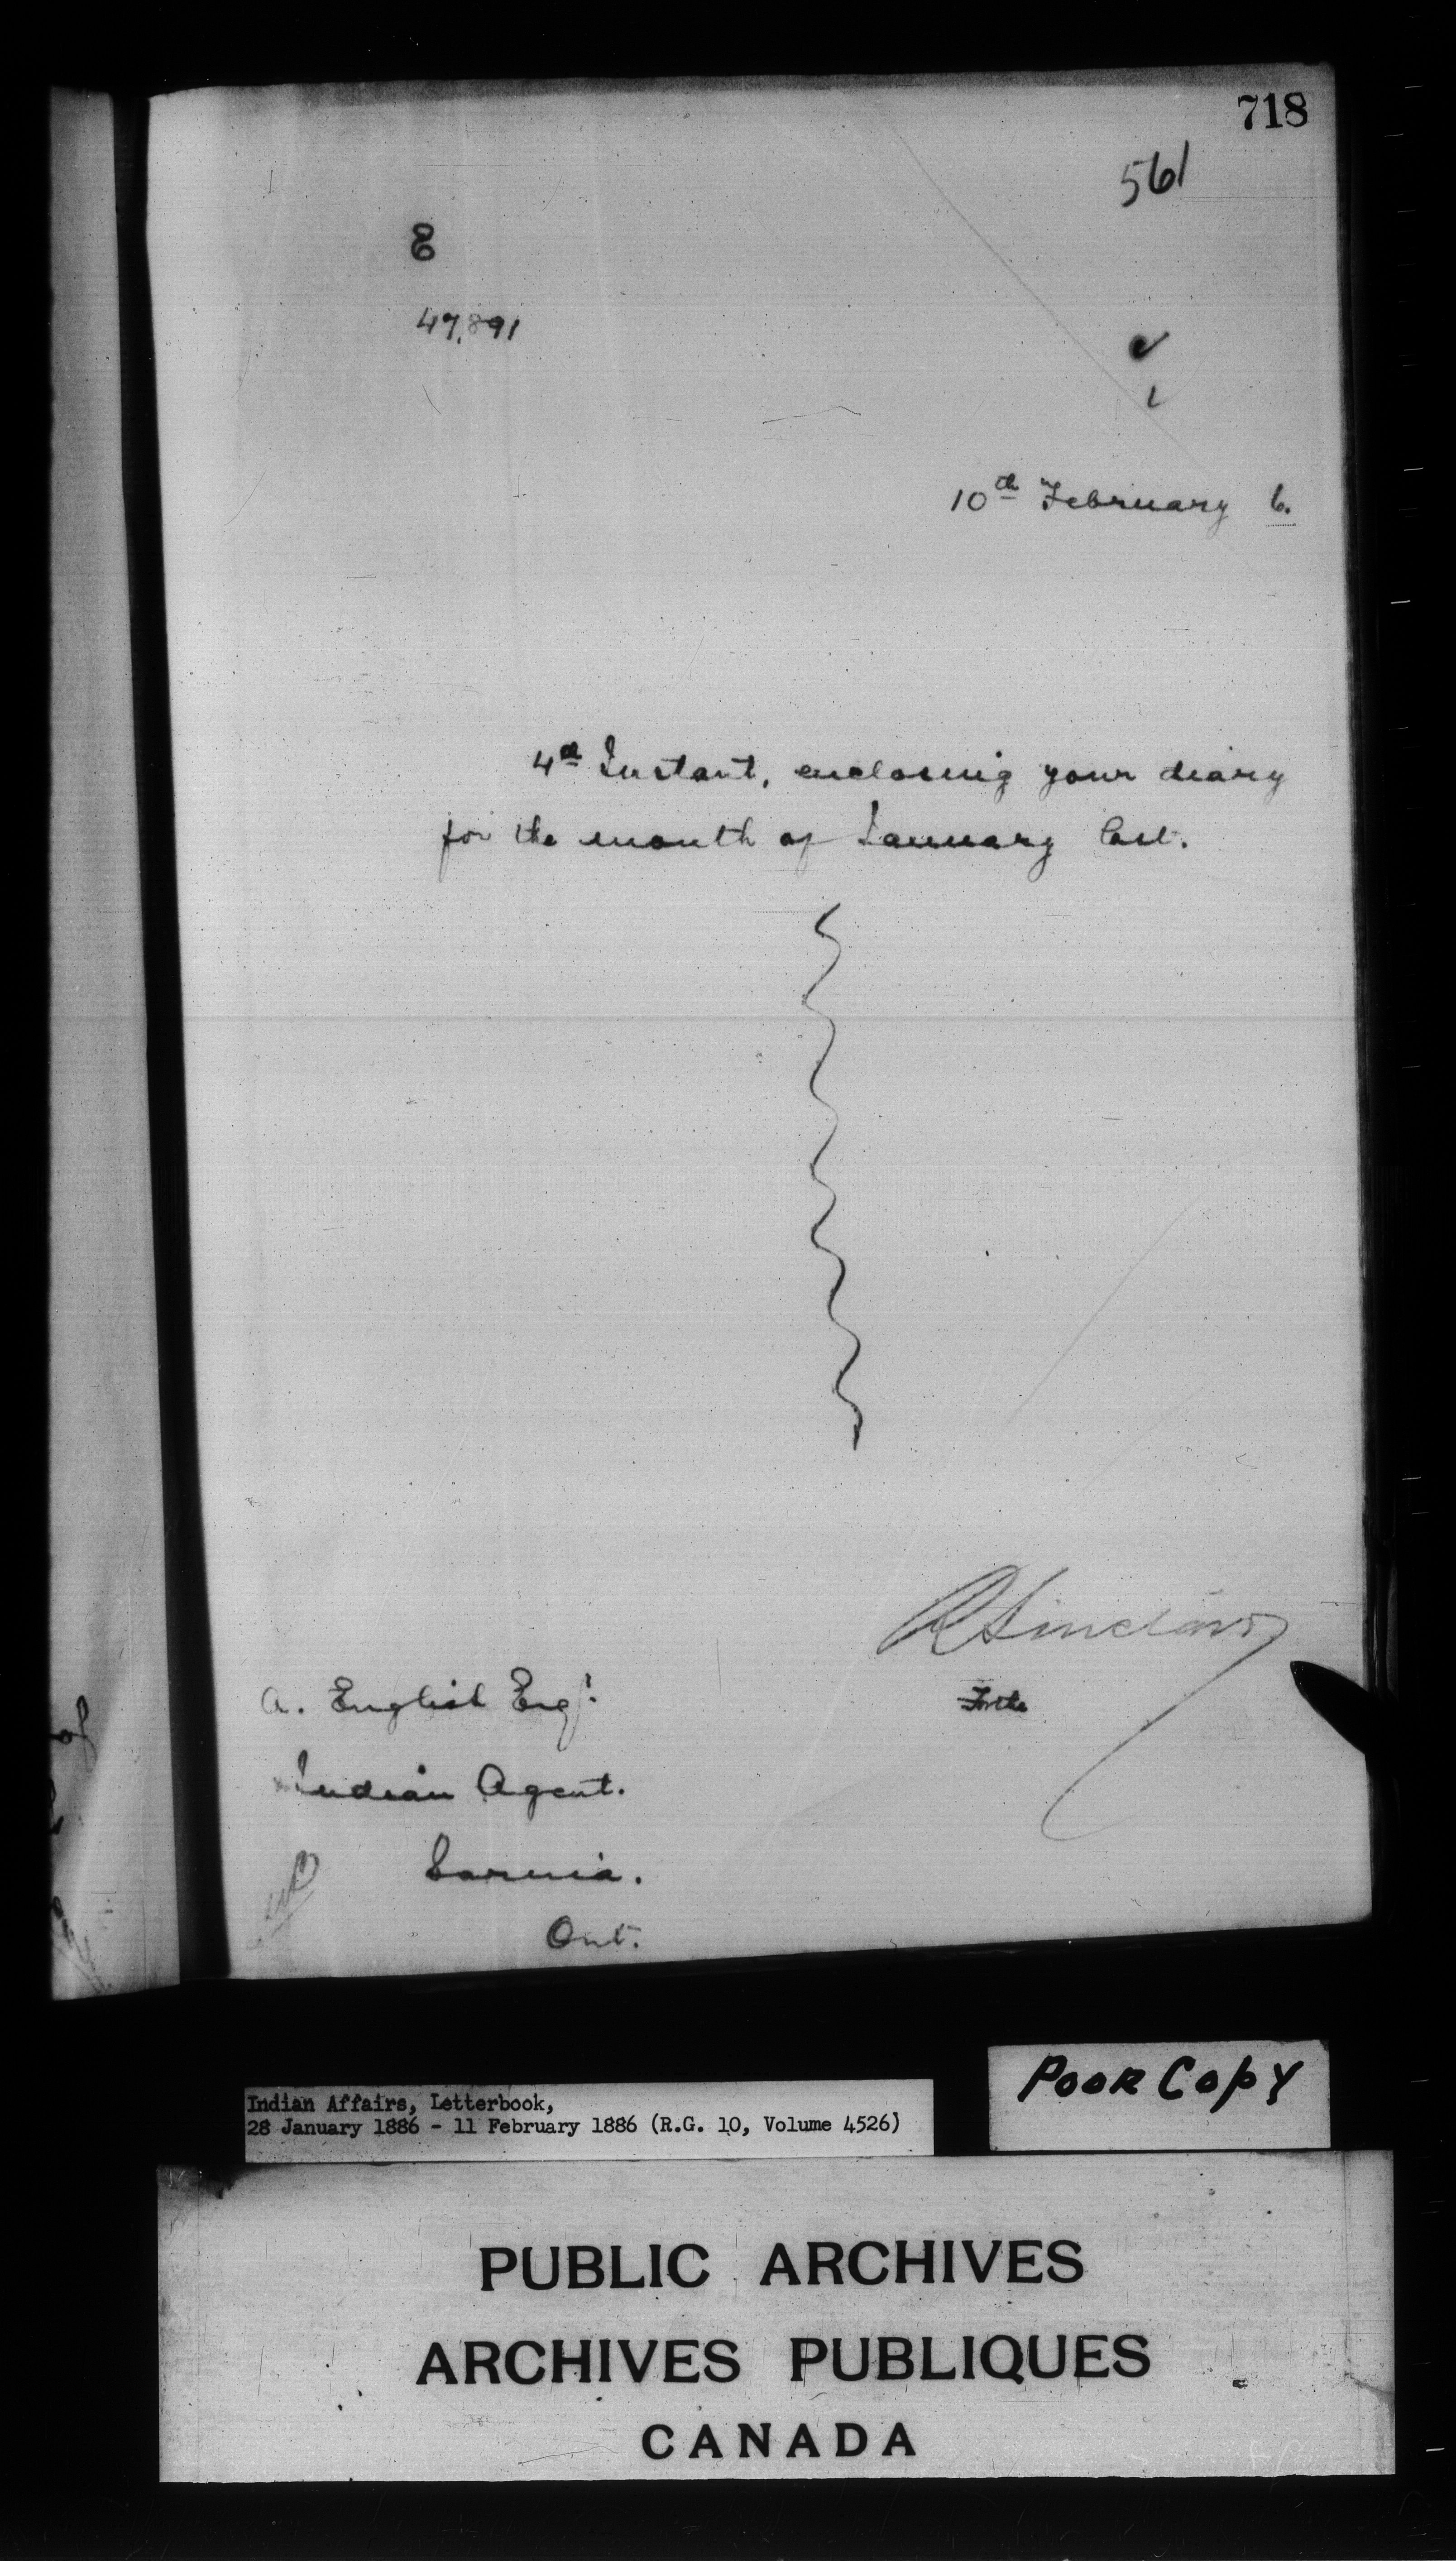 718
561
47,891
10th February 6.
4th Instant, enclosing your diary
for the month of January last.
R Sinclair
For the
A. English Esqr.
Indian Agent.
Sarnia.
Ont.
Indian Affairs, Letterbook,
28 January 1886 - 11 February 1886 (R.G. 10, Volume 4526)
POOR COPY
PUBLIC ARCHIVES
ARCHIVES PUBLIQUES
CANADA